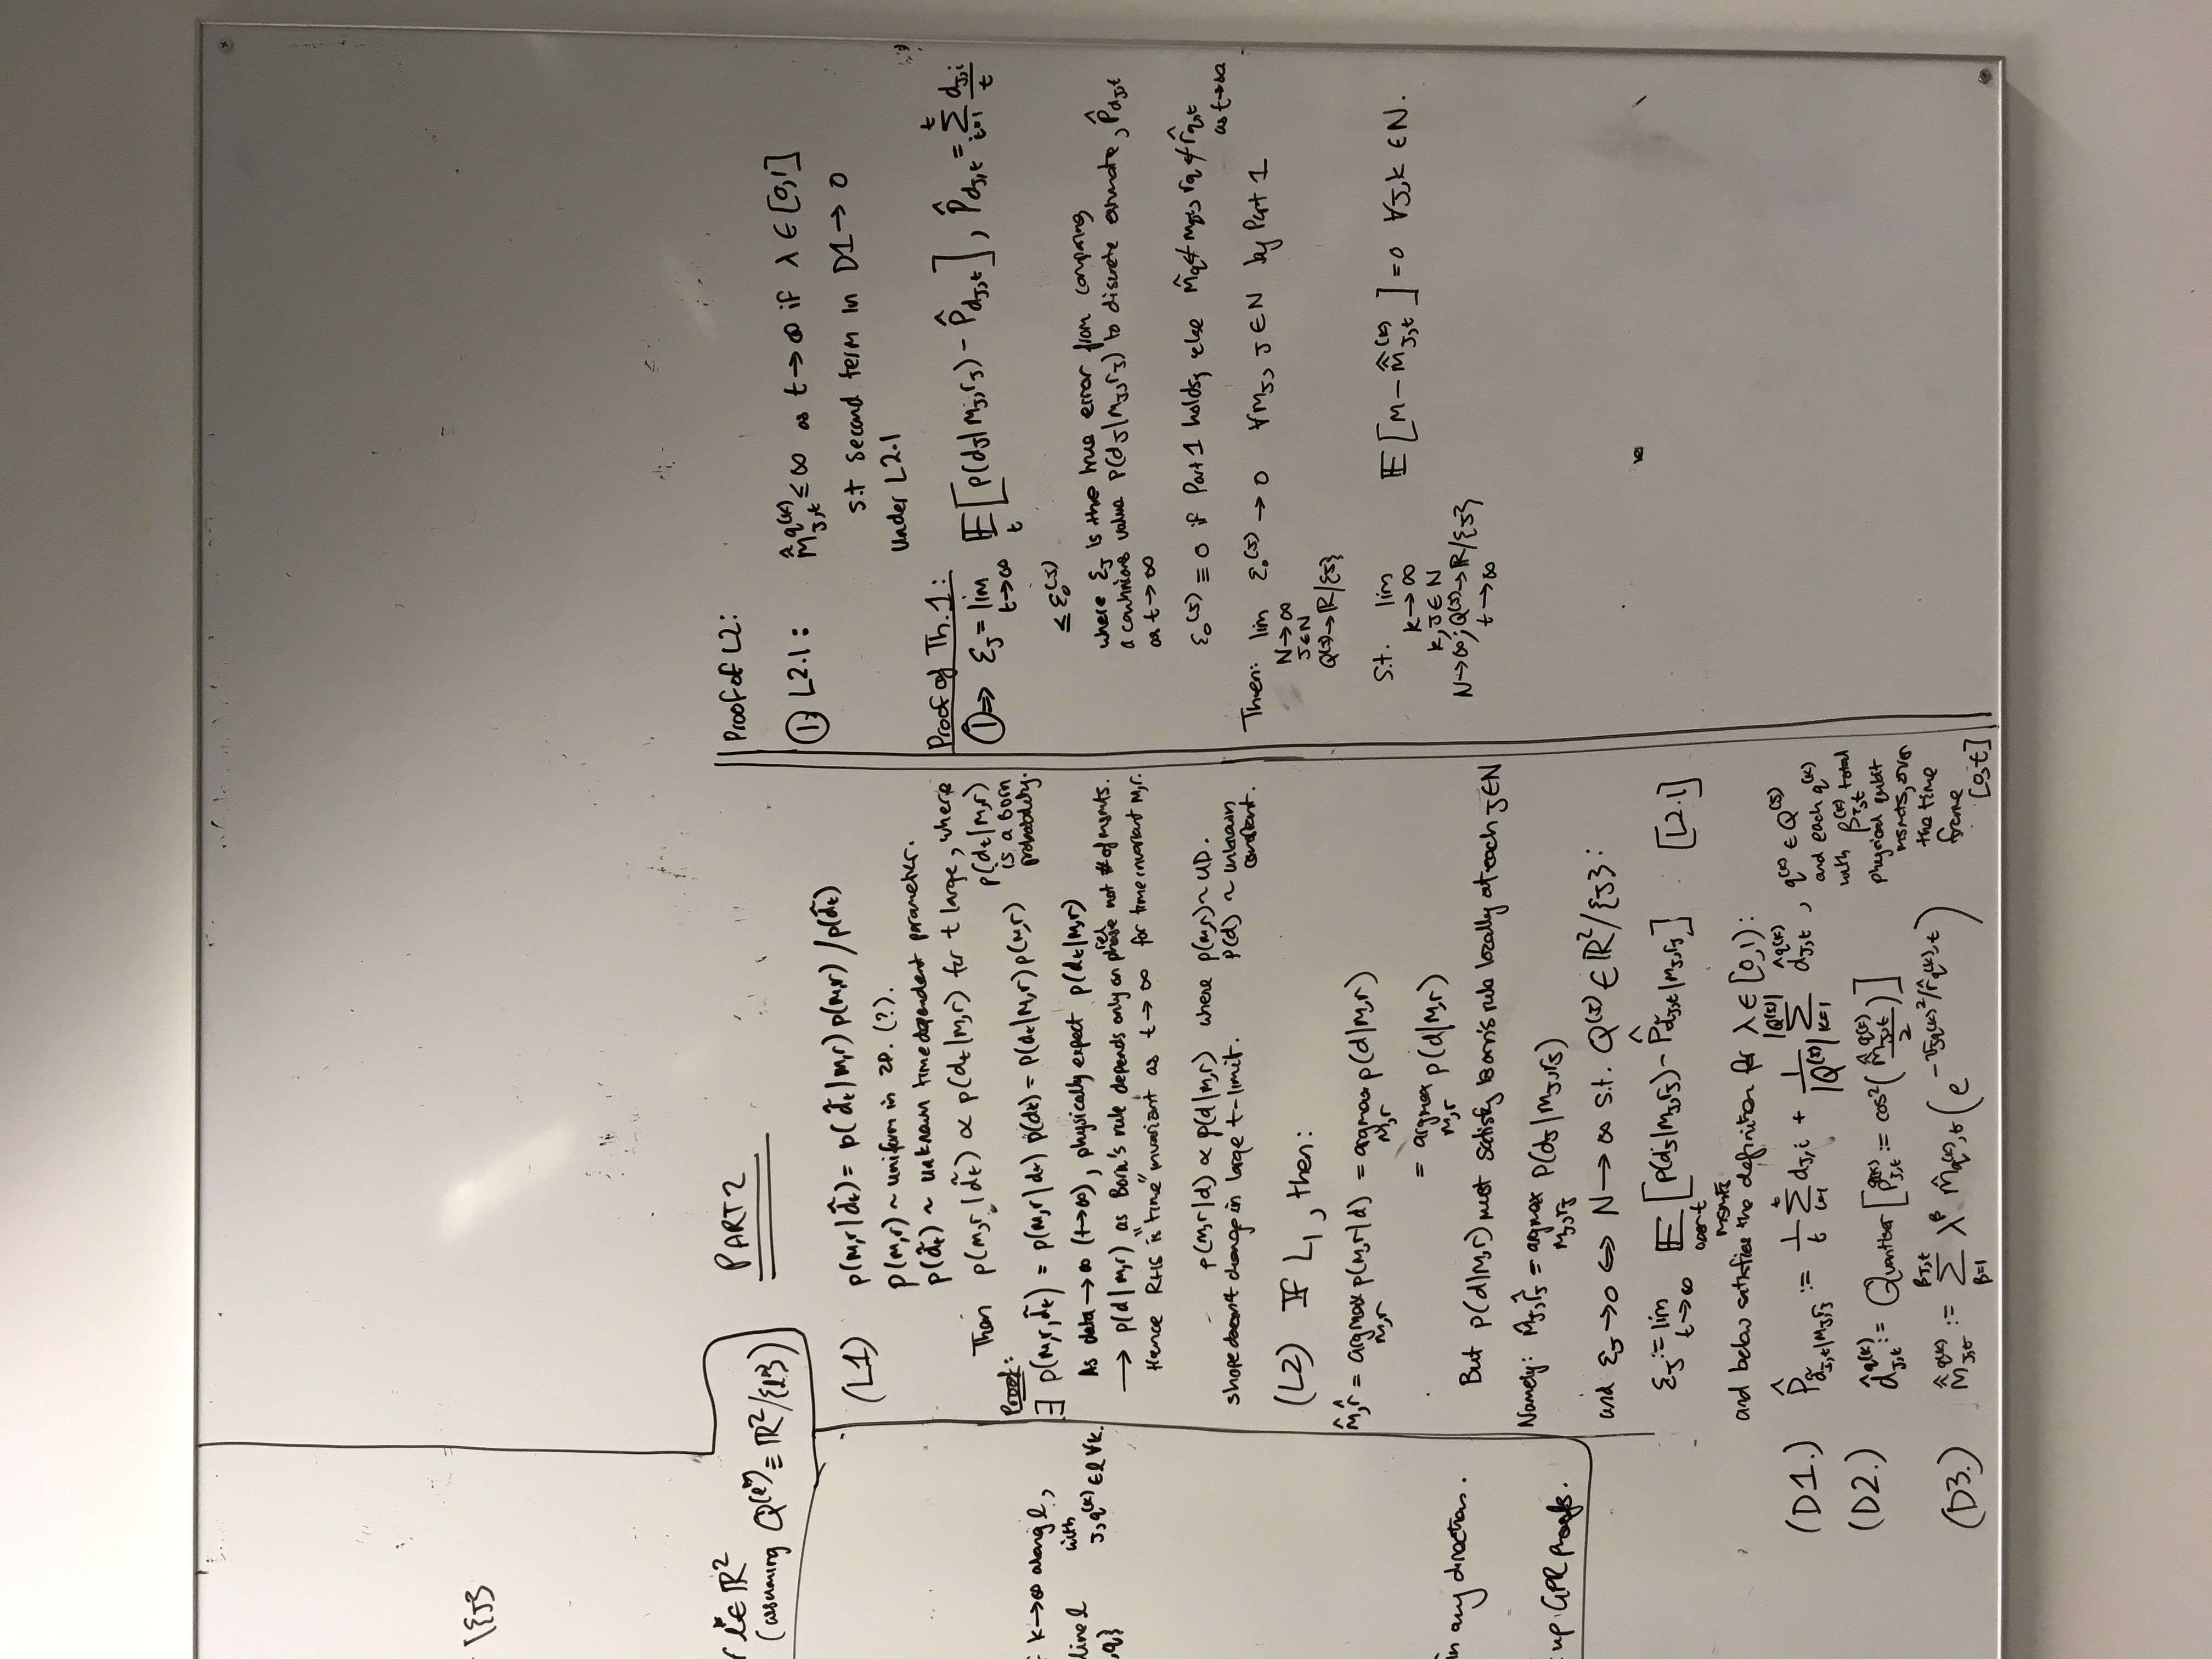 \{J}
r l* ∈ ℝ²
(assuming Q^(l*) ≡ ℝ²/{l*})
k→∞ along l,
line l with
,q} J,q^(k) ∈ l ∀k.
in any direction.
up GPR proofs.
PART 2
(L1) p(m,r|d̃_t) = p(d̃_t|m,r) p(m,r) / p(d̃_t)
p(m,r) ~ uniform in 2D. (?).
p(d̃_t) ~ unknown time dependent parameter.
Then p(m,r|d̃_t) ∝ p(d_t|m,r) for t large, where
p(d_t|m,r)
is a Born
probability.
Proof:
∃ p(m,r,d̃_t) = p(m,r|d_t) p(d_t) = p(d_t|m,r) p(m,r)
As data → ∞ (t→∞), physically expect p(d_t|m,r)
→ p(d|m,r) as Born's rule depends only on phase not # of msmts.
Hence RHS is "time" invariant as t → ∞ for time invariant m,r.
p(m,r|d) ∝ p(d|m,r) where p(m,r) ~ UD.
shape doesn't change in large t-limit. p(d) ~ unknown
constant.
(L2) If L₁, then:
m̂,r̂ = argmax_{m,r} p(m,r|d) = argmax_{m,r} p(d|m,r)
= argmax_{m,r} p(d|m,r)
But p(d|m,r) must satisfy Born's rule locally at each J∈N
Namely: m̂_J, r̂_J = argmax_{m_J,r_J} P(d_J|m_J,r_J)
and ε_J→0 ⇔ N→∞ s.t. Q^(J) ∈ ℝ²/{J}:
ε_J := lim_{t→∞} 𝔼_{over t msmts} [p(d_J|m_J,r_J) − P̂_{d̃_J,t|m_J,r_J}] [L2.1]
and below satisfies the definition for λ ∈ [0,1):
(D1.) P̂_{d̃_J,t|m_J,r_J} := 1/t Σ_{i=1}^{t} d_{J,i} + 1/|Q^(J)| Σ_{k=1}^{|Q^(J)|} d̂_{J,t}^{q(k)}, q^(k) ∈ Q^(J)
and each q^(k)
with β_{J,t}^{(k)} total
physical qubit
msmts, over
the time
frame
[0,t]
(D2.) d̂_{J,t}^{q(k)} := Quantiser [p_{J,t}^{q(k)} := cos²(m̂̂_{J,t}^{q(k)}/2)]
(D3.) m̂̂_{J,t}^{q(k)} := Σ_{β=1}^{β_{J,t}} λ^β m̂_{q(k),t} (e^{−v_{Jq(k)}²/r̂_{q(k),t}})
Proof of L2:
① L2.1: m̂̂_{J,t}^{q(k)} ≤ ∞ as t→∞ if λ ∈ [0,1]
s.t second term in D1 → 0
under L2.1
Proof of Th. 1:
①⇒ ε_J = lim_{t→∞} 𝔼_t [p(d_J|m_J,r_J) − P̂_{d_J,t}], P̂_{d_J,t} = Σ_{i=1}^{t} d_{J,i}/t
≤ ε₀^(J)
where ε_J is the true error from comparing
a continuous value p(d_J|m_J,r_J) to discrete estimate, P̂_{d_J,t}
as t→∞
ε₀^(J) ≡ 0 if Part 1 holds; else m̂_q ↚ m_{q,t}, r_q ↚ r̂_{q,t}
as t→∞
Then: lim ε₀^(J) → 0 ∀m_J, J∈N by Part 1
N→∞
J∈N
Q^(J)→ℝ/{J}
s.t. lim 𝔼[m − m̂̂_{J,t}^{(k)}] = 0 ∀J,k ∈ N.
k→∞
k,J∈N
N→∞; Q^(J)→ℝ/{J}
t→∞